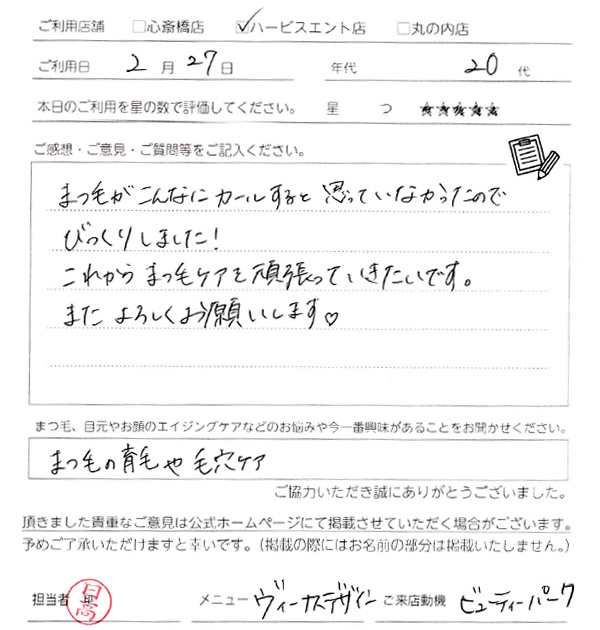 ご利用店舗 □心斎橋店 ☑ハービスエント店 □丸の内店
ご利用日 2月27日 年代 20代
本日のご利用を星の数で評価してください。 星 つ ★★★★★
ご感想・ご意見・ご質問等をご記入ください。
まつ毛がこんなにカールすると思っていなかったので
びっくりしました!
これからまつ毛ケアを頑張っていきたいです。
またよろしくお願いします♡
まつ毛、目元やお顔のエイジングケアなどのお悩みや今一番興味があることをお聞かせください。
まつ毛の育毛や毛穴ケア
ご協力いただき誠にありがとうございました。
頂きました貴重なご意見は公式ホームページにて掲載させていただく場合がございます。
予めご了承いただけますと幸いです。(掲載の際にはお名前の部分は掲載いたしません。)
担当者 印 日高 メニュー ヴィーナスデザイン ご来店動機 ビューティーパーク